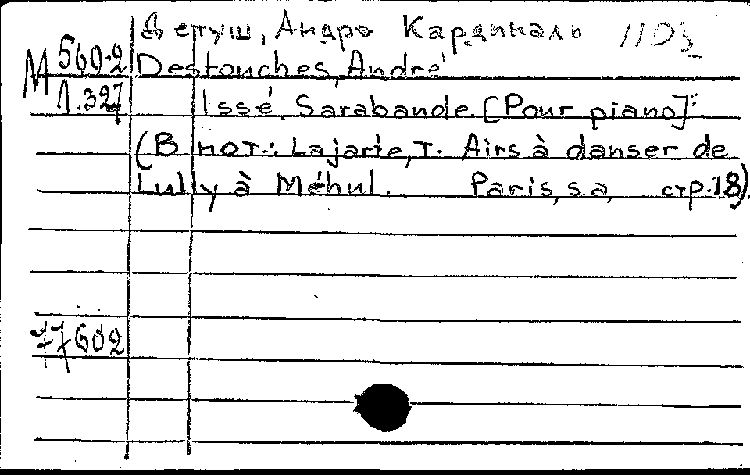 Детуш, Андрэ Кардиналь 1103
М 560-2 Destouches, André
Л.327 Issé. Sarabande. [Pour piano].
(В нот.: Lajarte, T. Airs à danser de
Lully à Méhul. Paris, s.a, стр.18)
77602